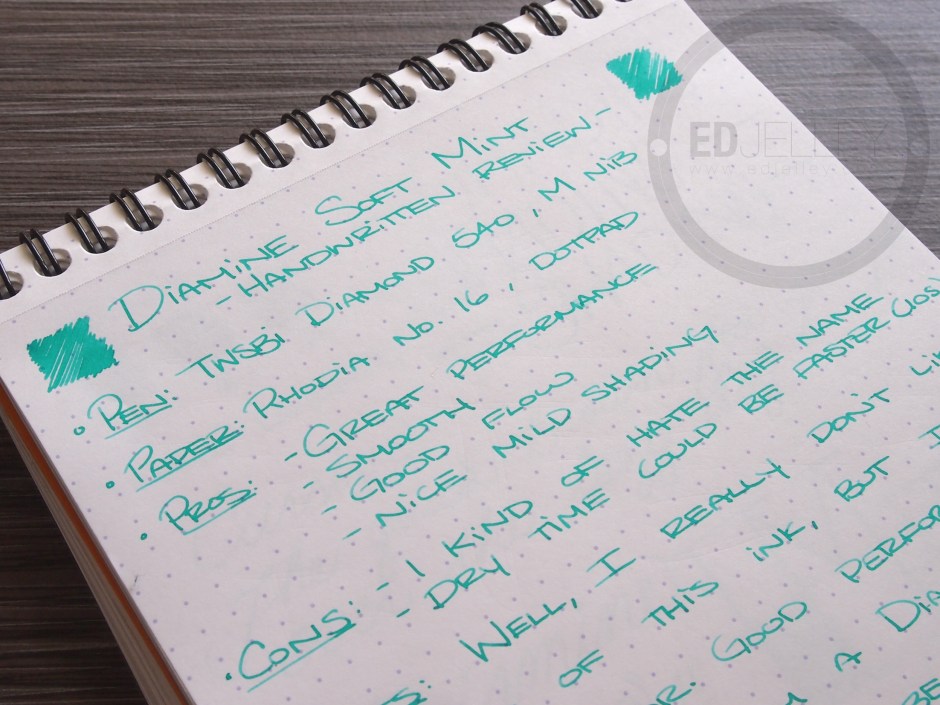 Diamine Soft Mint
- Handwritten Review -
• Pen: TWSBI Diamond 540, M Nib
• Paper: Rhodia No. 16, Dotpad
• Pros: - Great Performance
- Smooth
- Good Flow
- Nice Mild Shading
• Cons: - I kind of hate the name
- Dry time could be faster (10s
Well, I really don't
of this ink, but I
Good
a
ED JELLEY